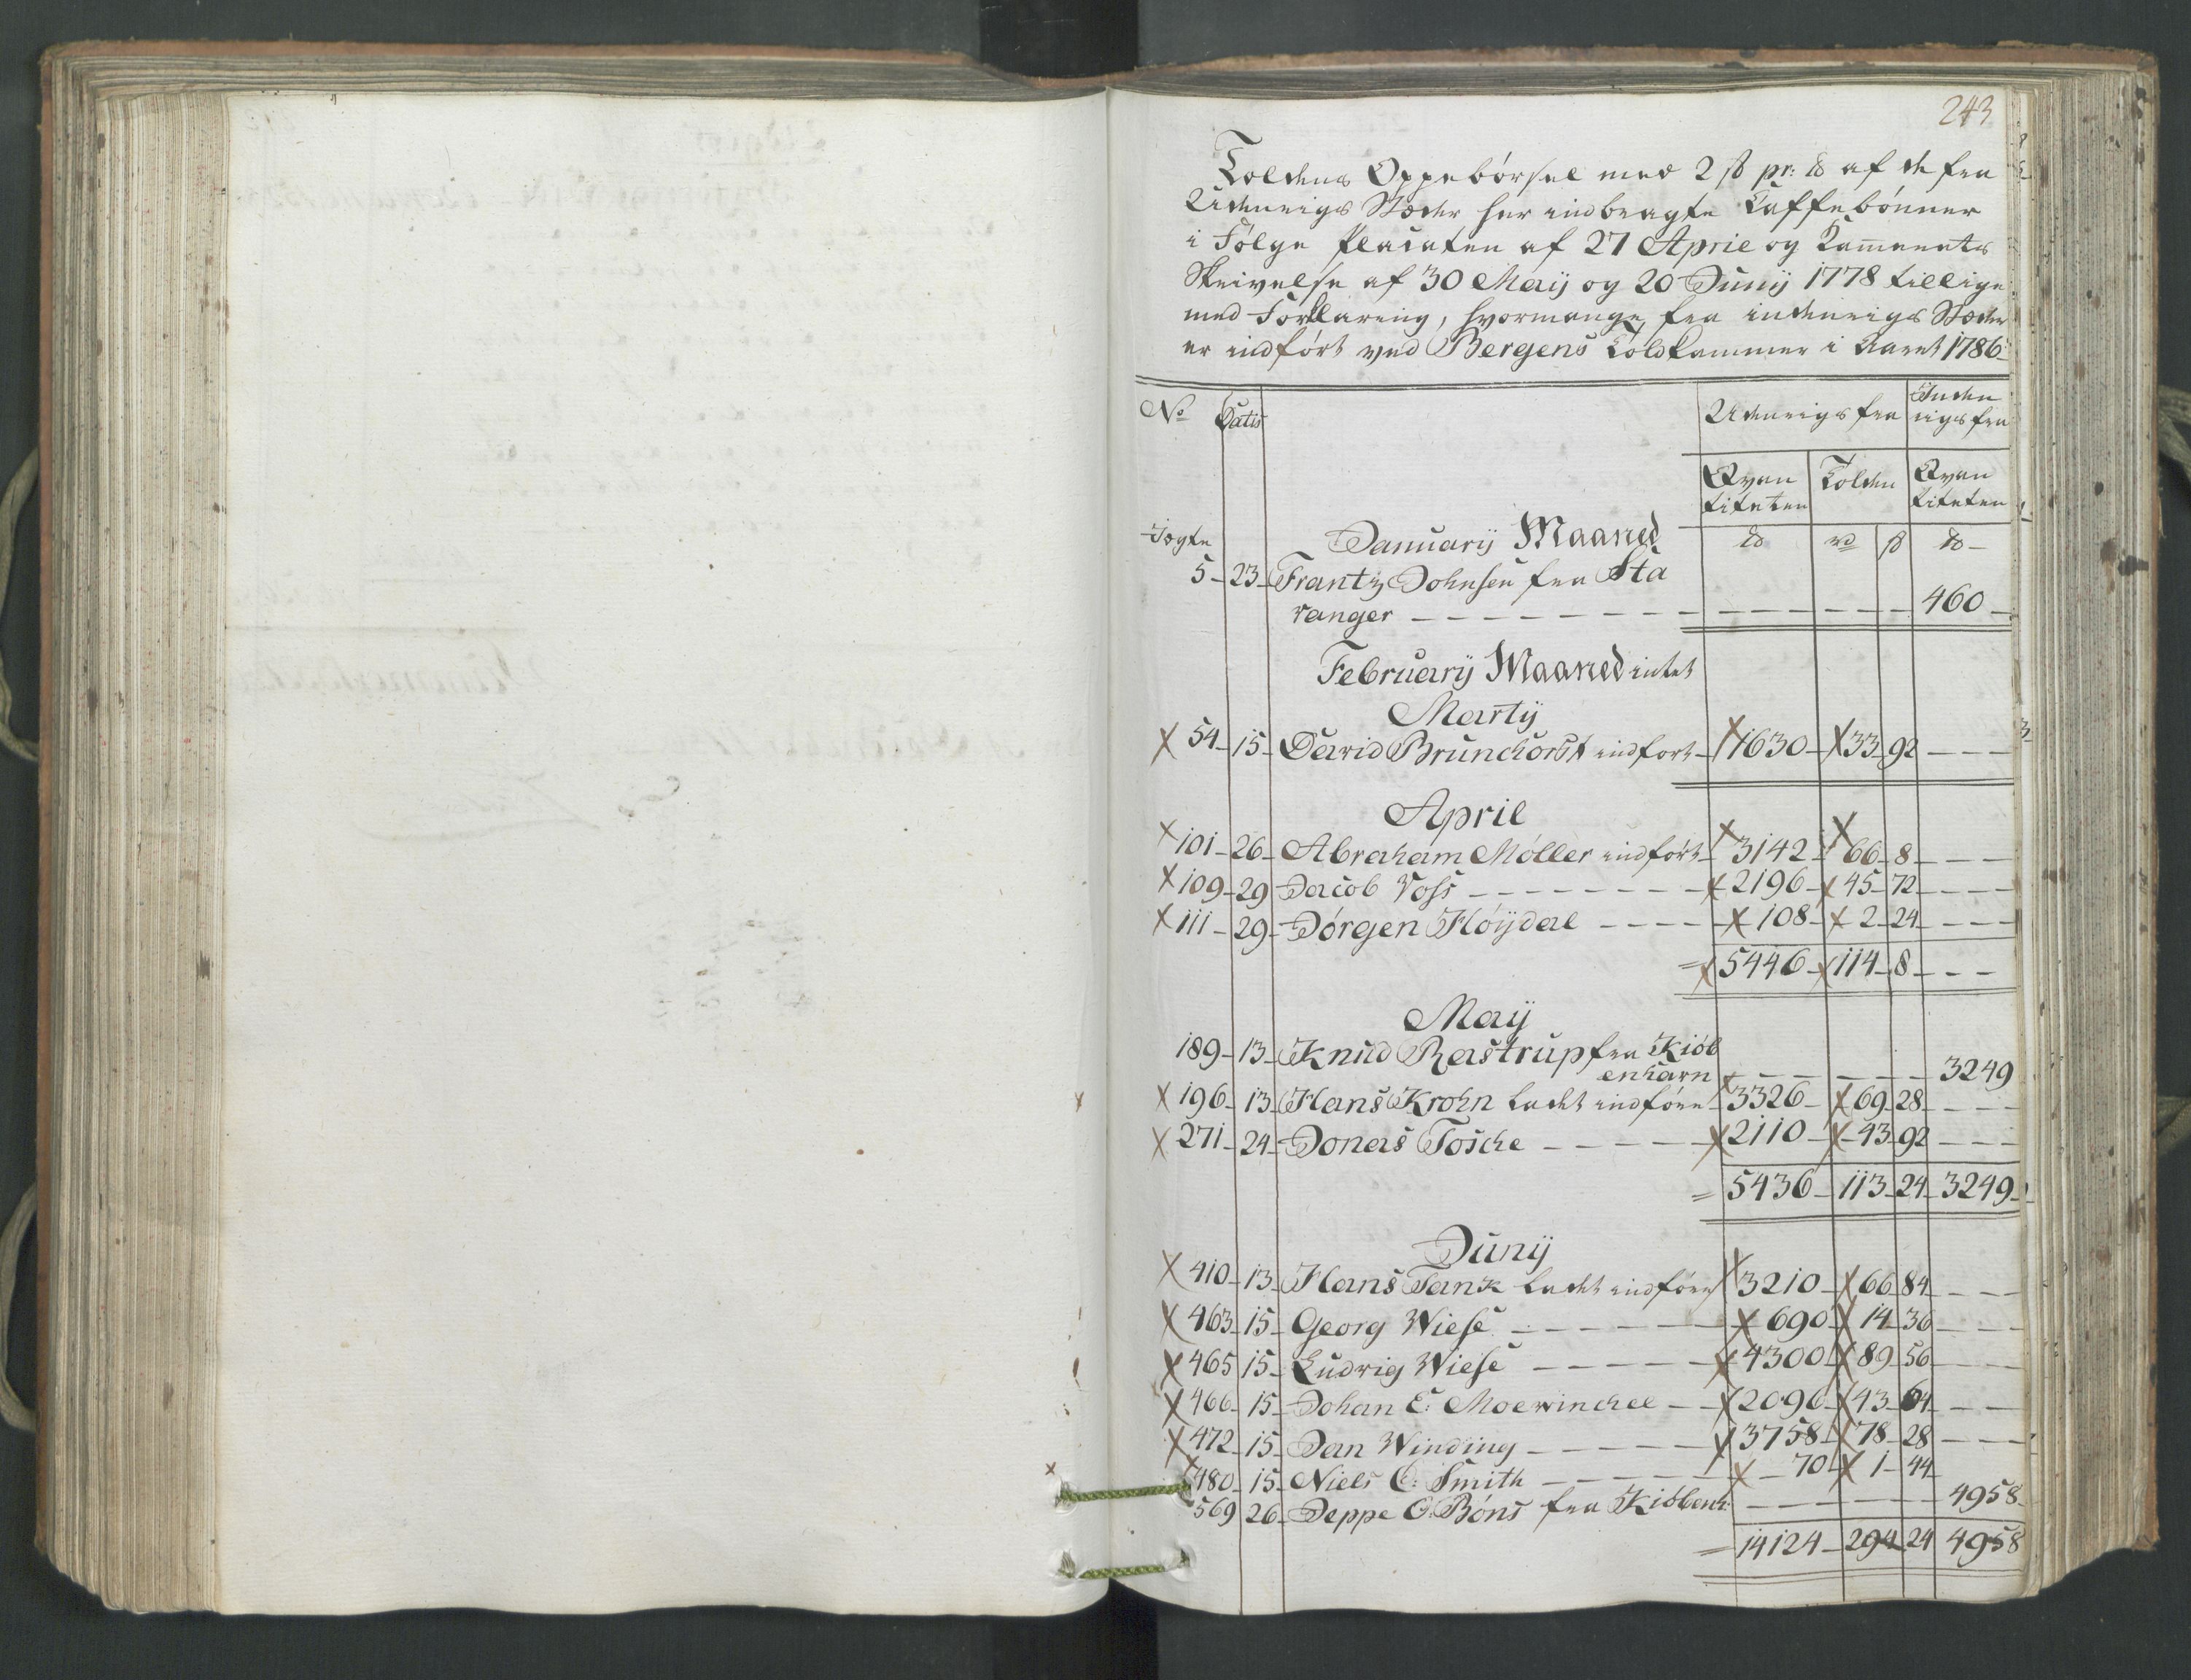 243
Toldens Oppebørsel med 2 ß pr: ℔ af de fra
Udenrigs Stæder her indbragte Caffebønner
i Følge Placaten af 27 April og Kammerets
Skrivelse af 30 Maij og 20 Junij 1778 tillige
med Forklaring, hvormange fra indenrigs Stæder
er indført ved Bergens Toldkammer i Aaret 1786
No Datis Udenrigs fra Inden
rigs fra
Qvan Tolden Qvan
titeten titeten
Januarij Maaned ℔ rd ß ℔
5 - 23 - Frantz Johnsen fra Sta
vanger - - - 460 -
Februarij Maaned intet
Martij
X 54 - 15 - David Brunchorst indført - X 1630 - X 33 - 92 - - -
April
X 101 - 26 - Abraham Møller indført - X 3142 - X 66 - 8 - - -
X 109 - 29 Jacob Voss - - - X 2196 - X 45 - 72 - - -
X 111 - 29 - Jørgen Fløijdal - - - X 108 - X 2 - 24 - - -
= X 5446 - X 114 - 8 - - -
Maij
189 - 13 - Knud Rastrup fra Kiøb
enhavn - - - 3249
X 196 - 13 - Hans Krohn ladet indføre X 3326 - X 69 - 28 - - -
X 271 - 24 - Jonas Tosche - - - X 2110 - X 43 - 92 - - -
= 5436 - 113 - 24 - 3249 -
Junij
X 410 - 13 - Hans Tank ladet indføre X 3210 - X 66 84 - - -
X 463 - 15 - Georg Wiese - - - X 690 X 14 36 - - -
X 465 15 - Ludvig Wiese - - - X 4300 X 89 56 - - -
X 466 - 15 - Johan E: Moewinckel - - X 2096 X 43 - 64 - - -
X 472 - 15 - Jan Winding - - - X 3758 - X 78 - 28 - - -
X 480 - 15 - Niels C: Smith - - - X - 70 - X 1 - 44 -
569 26 - Jeppe O: Bøns fra Kiøbenh: - - - 4958 -
= 14124 - 294 24 4958